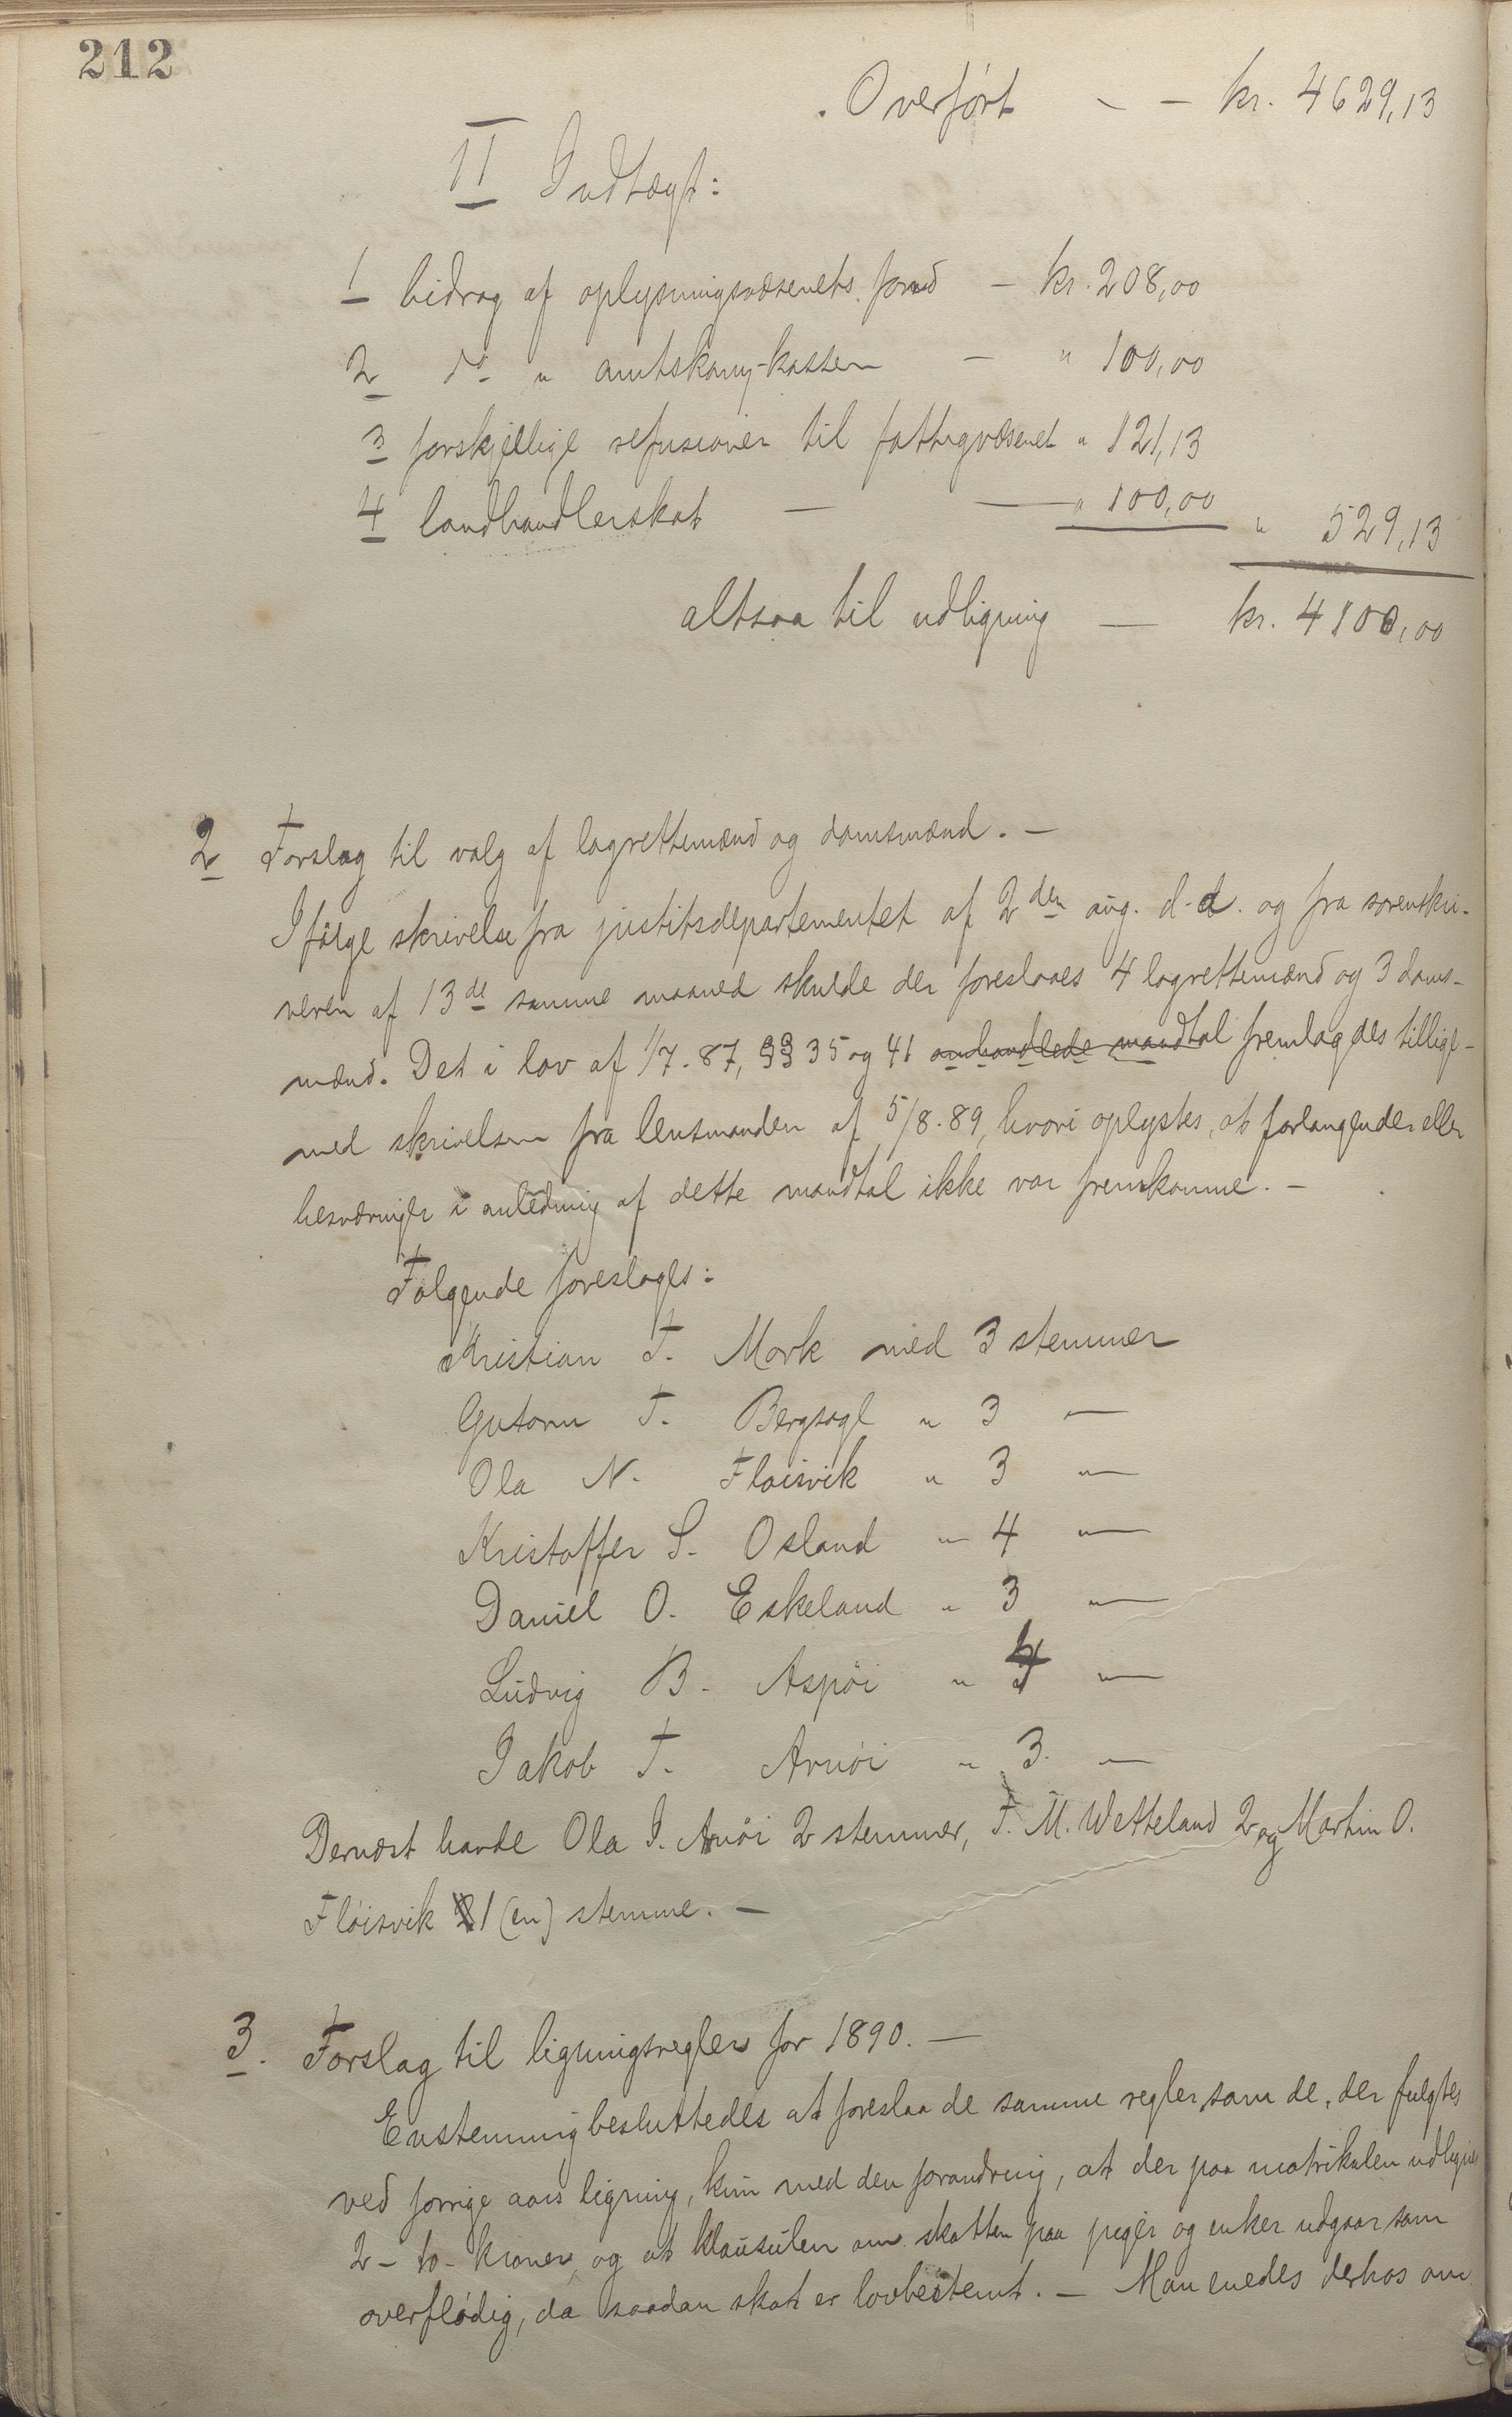 212
Overført - - kr. 4629,13
II Indtægt:
1 bidrag af oplysningsvæsenets fond - kr. 208,00
2 do " amtskom.-kassen - " 100,00
3 forskjellige refusioner til fattigvæsenet " 121,13
4 landhandlerskat - - " 100,00 " 529,13
altsaa til udligning - kr. 4100,00
2 Forslag til valg af lagrettemænd og domsmænd. -
Ifølge skrivelse fra justitsdepartementet af 2den aug. d.d. og fra sorenskri-
veren af 13de samme maaned skulde der foreslaaes 4 lagrettemænd og 3 doms-
mænd. Det i lov af 1/7.87, §§ 35 og 41 omhandlede mandtal fremlagdes tillige-
med skrivelsen fra lensmanden af 5/8.89, hvori oplystes, at forlangender eller
besværinger i anledning af dette mandtal ikke var fremkomne. -
Følgende foresloges:
Kristian T. Mork med 3 stemmer
Gutorm T. Bergsagl " 3 -
Ola N. Fløisvik " 3 "-
Kristoffer S. Osland " 4 "-
Daniel O. Eskeland " 3 "-
Ludvig B. Aspøi " 4 "-
Jakob T. Arnøi " 3. "-
Dernæst havde Ola J. Arnøi 2 stemmer, T. M. Wetteland 2 og Martin O.
Fløisvik 1 (en) stemme. -
3. Forslag til ligningsregler for 1890. -
Enstemmig besluttedes at foreslaa de samme regler, som de, der fulgtes
ved forrige aars ligning, kun med den forandring, at der paa matrikulen udlignes
2 - to - kroner, og at klausulen om skatten paa piger og enker udgaar som
overflødig, da saadan skat er lovbestemt. - Man enedes derhos om